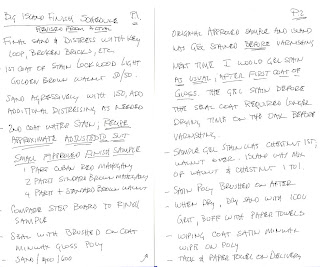 BIG ISLAND FINISH SCHEDULE P1
FINAL SAND & DISTRESS WITH KEY,
LOOP, BROKEN BRICKS, ETC.
- 1ST COAT OF STAIN LOCKWOOD LIGHT
GOLDEN BROWN WALNUT 50/50.
- SAND AGRESSIVELY WITH 150, ADD
ADDITIONAL DISTRESSING AS NEEDED
- 2ND COAT WATER STAIN,
APPROXIMATE ADJUSTED TO SUIT
SMALL APPROVED FINISH SAMPLE
1 PART CUBAN RED MAHOGANY
2 PARTS BROWN MAHOGANY
4 PART + STANDARD BROWN WALNUT
- COMPARE STEP BOARD TO FINAL
SAMPLE
- SEAL WITH BRUSHED ON COAT
MINWAX GLOSS POLY
- SAND 400/600
P2
ORIGINAL APPROVED SAMPLE AND ISLAND
WAS GEL STAINED BEFORE VARNISHING
NEXT TIME I WOULD GEL STAIN
AS USUAL, AFTER FIRST COAT OF
GLOSS. THE GEL STAIN BEFORE
THE SEAL COAT REQUIRED LONGER
DRYING TIME ON THE DAY BEFORE
VARNISHING.
- SAMPLE GEL STAIN WAS CHESTNUT 1ST,
WALNUT OVER. ISLAND WAS MIX
OF WALNUT & CHESTNUT 1 TO 1.
- SATIN POLY BRUSHED ON AFTER
- WHEN DRY, DRY SAND WITH 1000
GRIT, BUFF WITH PAPER TOWELS
- WIPING COAT SATIN MINWAX
WIPE ON POLY
- TACK & PAPER TOWEL ON DELIVERY